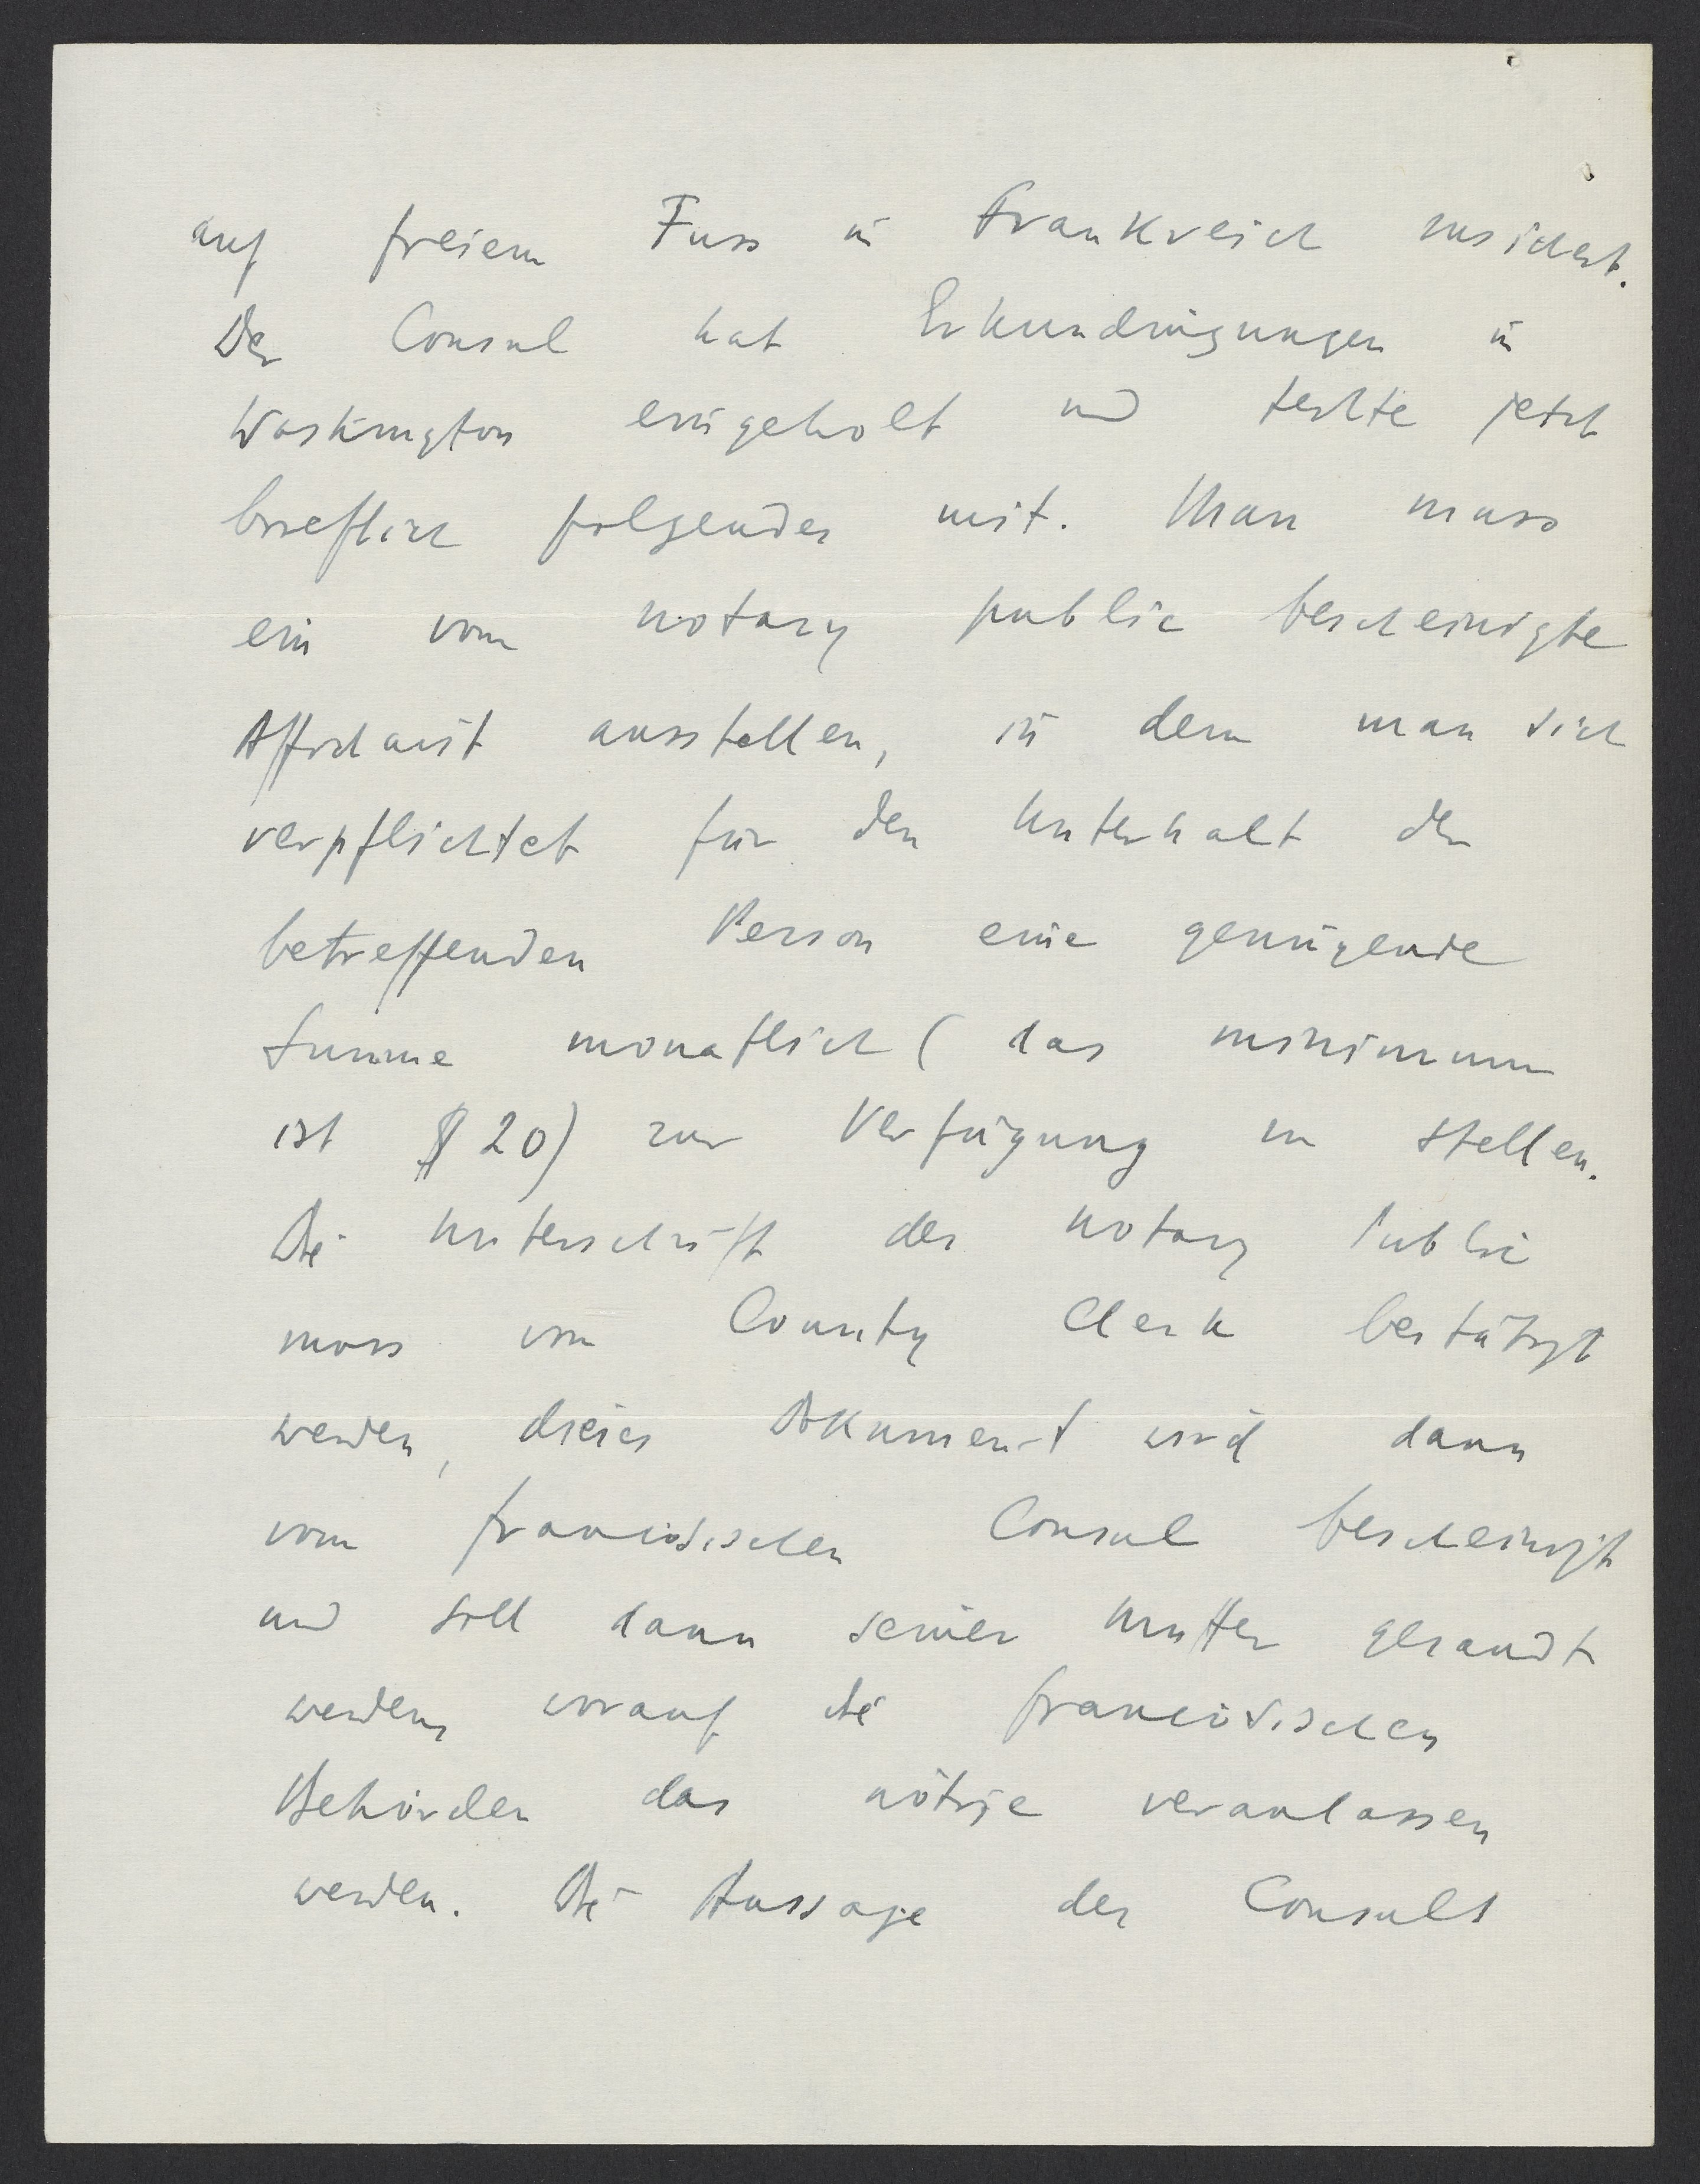 auf freiem Fuss in Frankreich zusichert.
Der Consul hat Erkundingungen in
Washington eingeholt und teilte jetzt
brieflich folgendes mit. Man muss
ein vom notary public bescheinigte
Affidavit ausstellen, in dem man sich
verpflichtet für den Unterhalt der
betreffenden Person eine genügende
Summe monatlich (das minimum
ist $ 20) zur Verfügung zu stellen.
Die Unterschrift des notary public
muss vom County Clerk bestätigt
werden, dieses Dokument wird dann
vom französischen Consul bescheinigt
und soll dann seiner Mutter gesandt
werden, worauf die französischen
Behörden das nötige veranlassen
werden. Die Aussage des Consuls